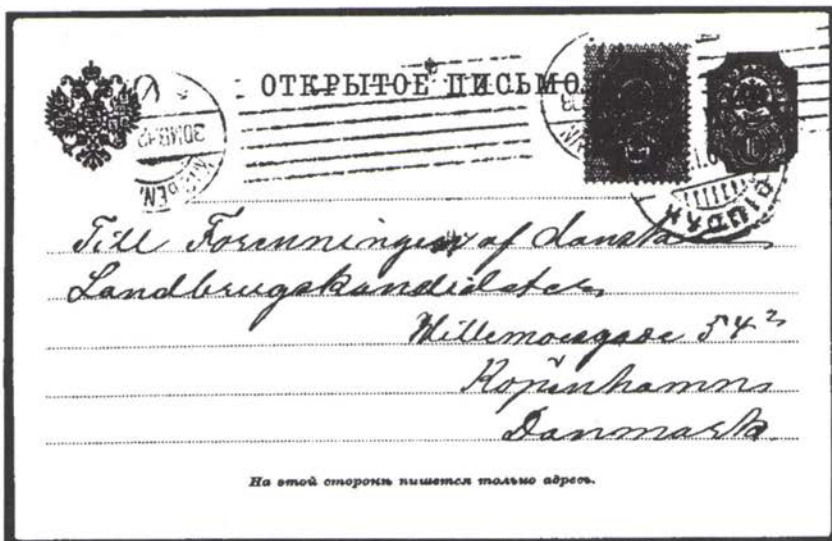 ОТКРЫТОЕ ПИСЬМО
Till Forenningen af danska
Landbrugskandidater
Willemoesgade 54²
Kopenhamn
Danmark
На этой сторонѣ пишется только адресъ.